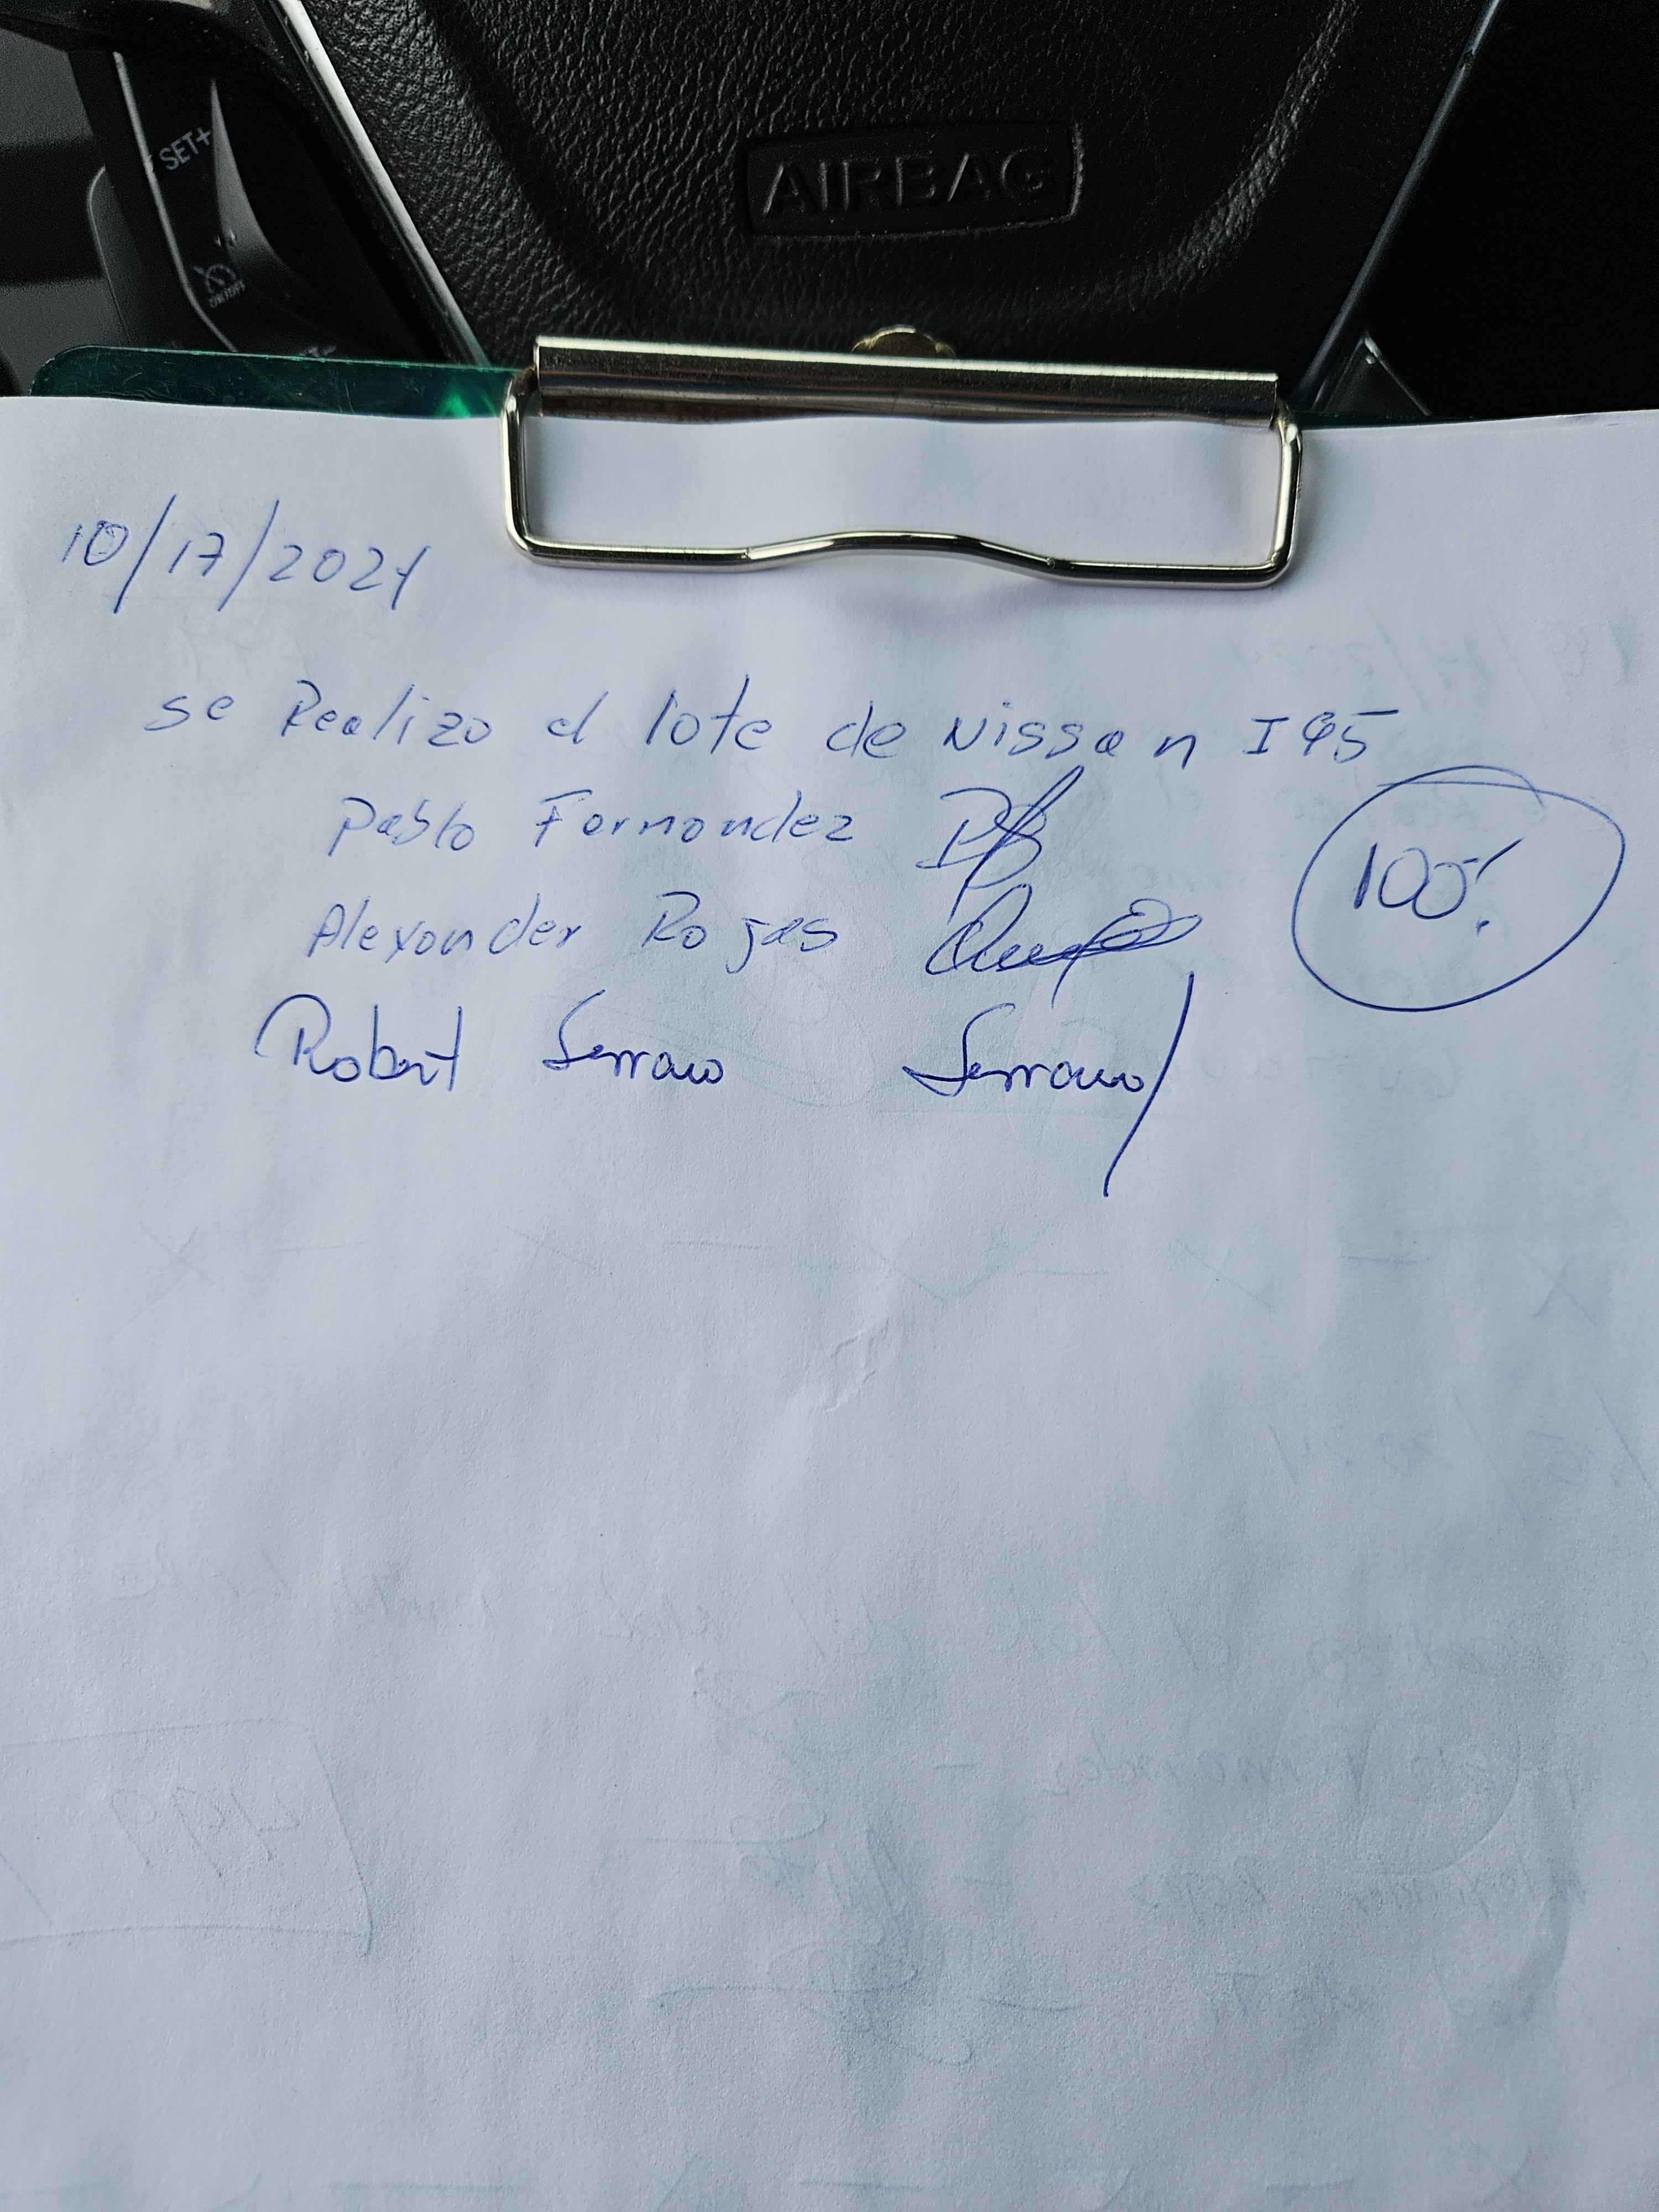 SET+
ON/OFF
AIRBAG
10/17/2024
se Realizo el lote de Nissan I95
Pablo Fernandez
100%
Alexander Rojas
Robert Serrano Serrano